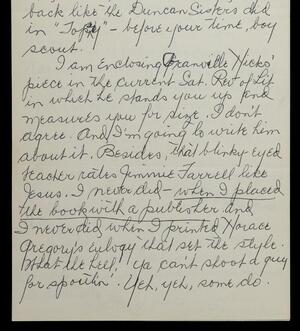 back like the Duncan Sisters did
in "Topsy" – before your time, boy
scout.
I am enclosing Granville Hicks'
piece in the current Sat. Rev of Lit
in which he stands you up and
measures you for size. I don't
agree. And I'm going to write him
about it. Besides, that blinky-eyed
teacher rates Jimmie Farrell like
Jesus. I never did – when I placed
the book with a publisher and
I never did when I printed Horace
Gregory's eulogy that set the style.
What the hell, ya can't shoot a guy
for spoutin'. Yeh, yeh, some do.